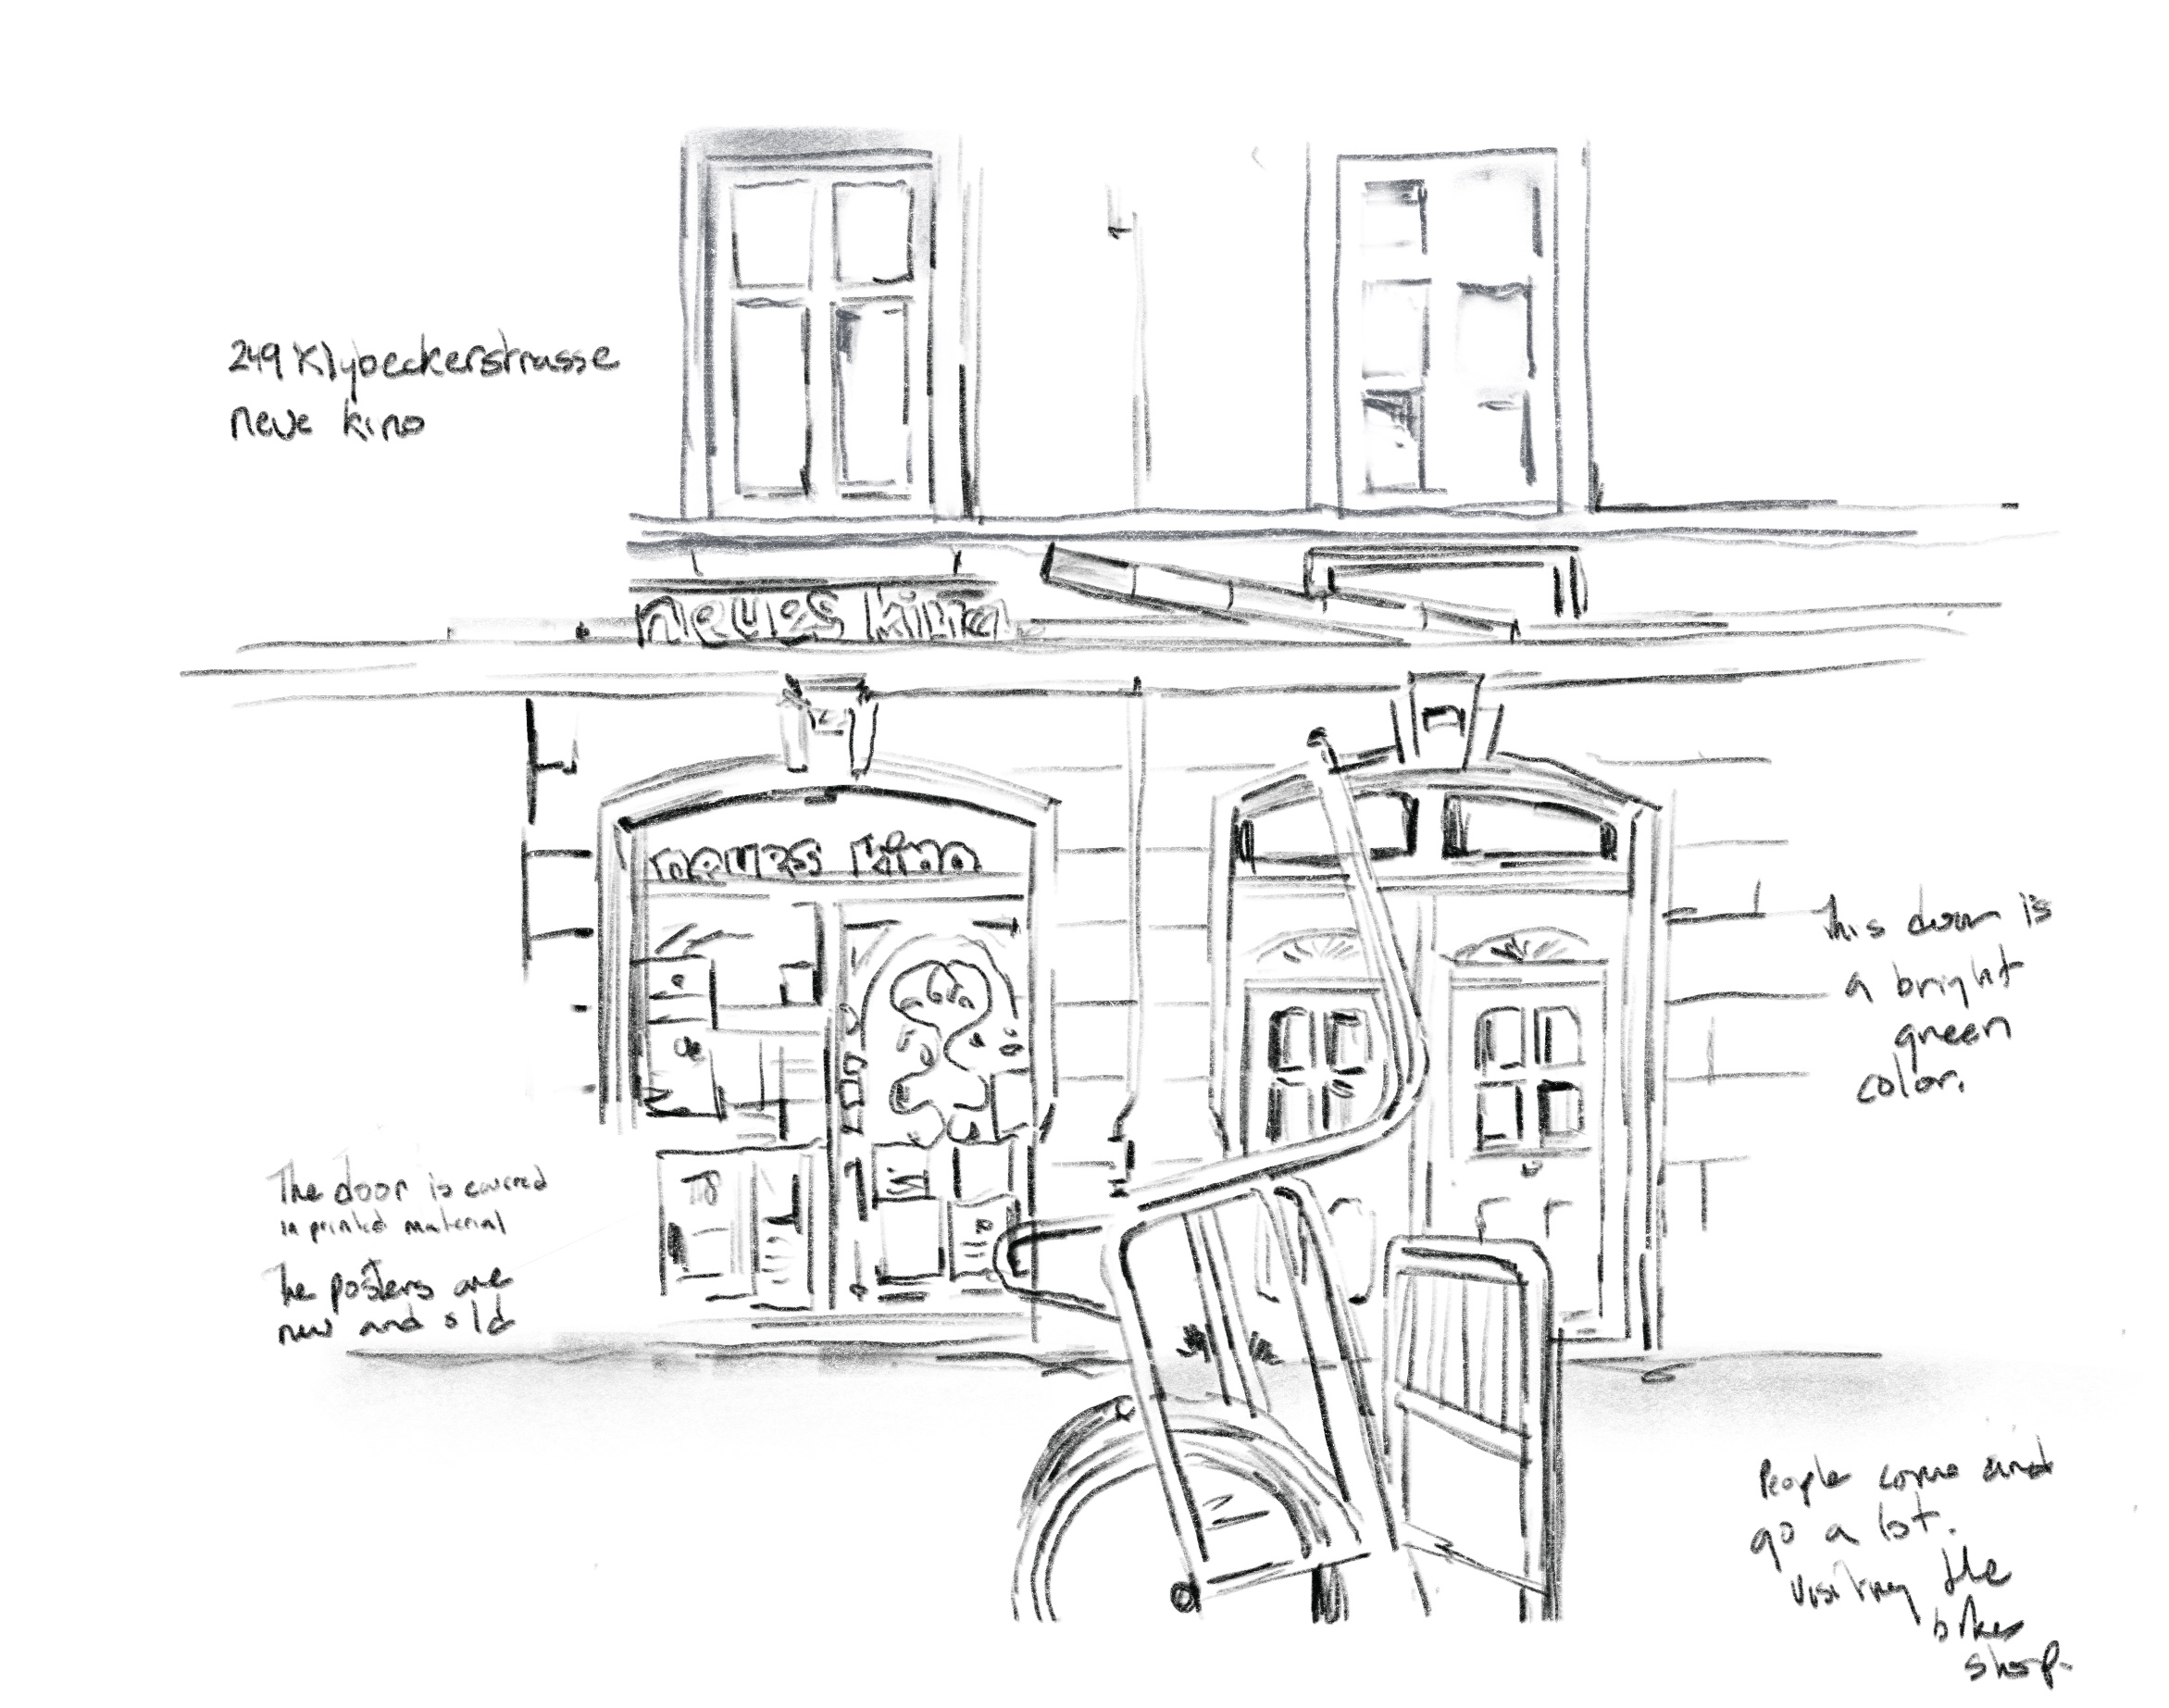 249 Klybeckerstrasse
neue kino
neues kino
neues kino
This door is
a bright
green
color.
The door is covered
in printed material
The posters are
new and old
People come and
go a lot.
visiting the
bikes
shop.